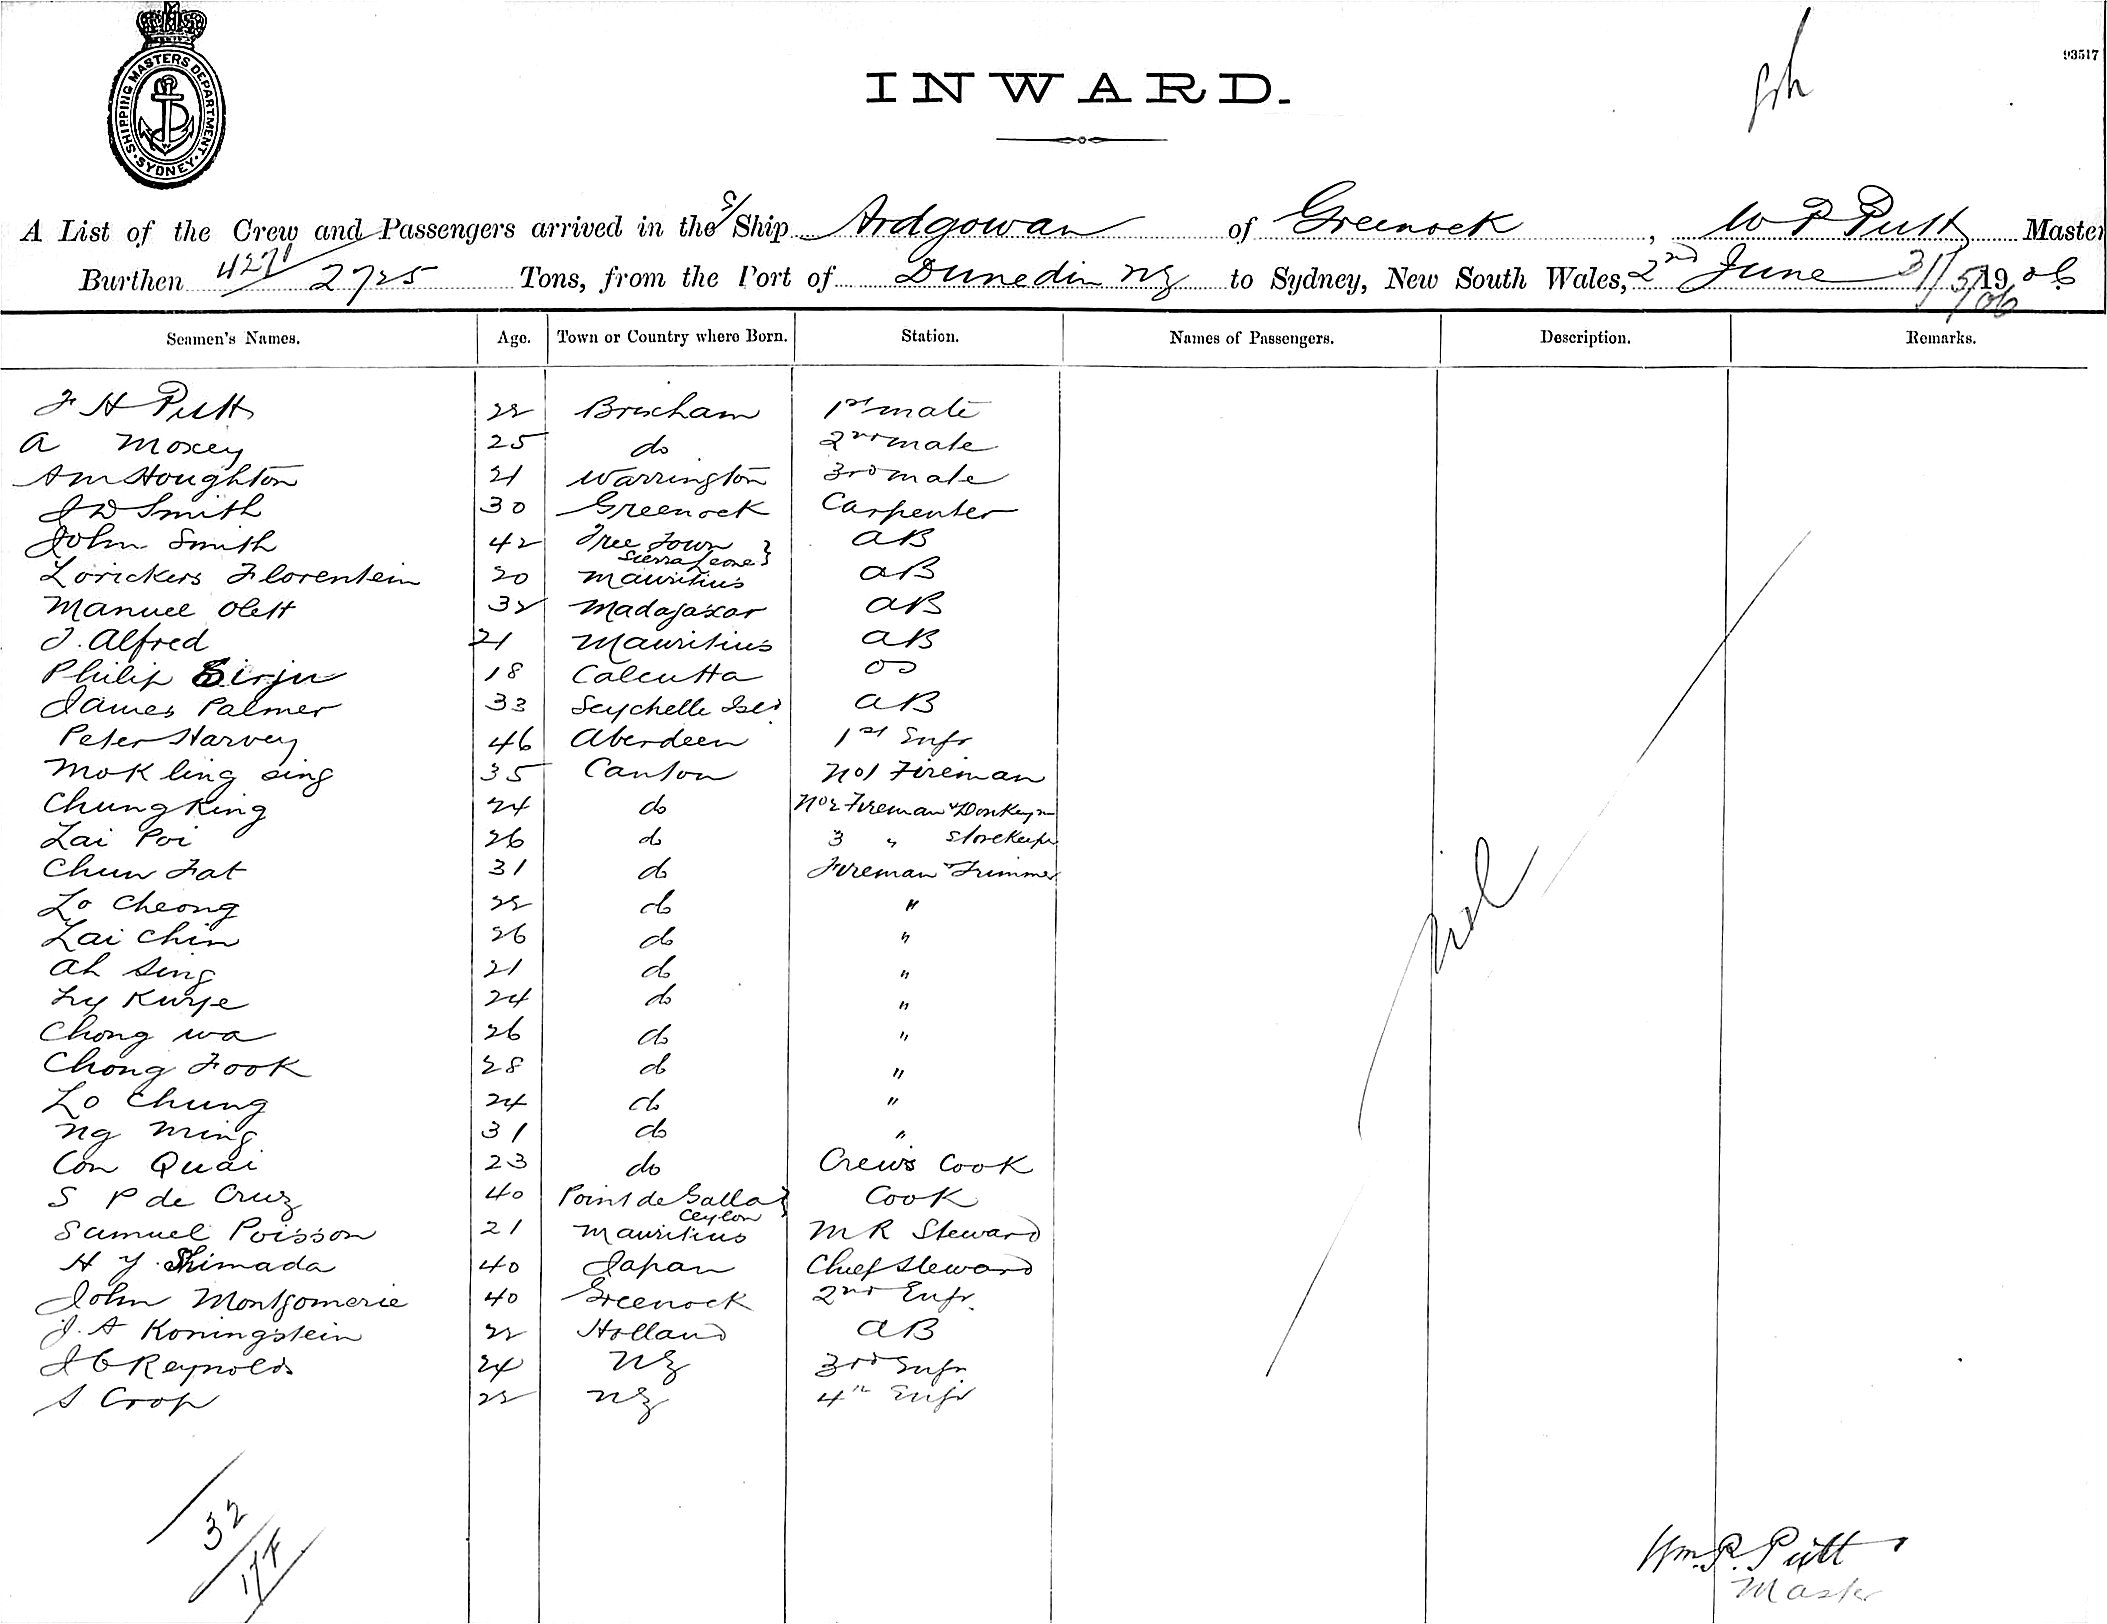 SHIPPING MASTERS DEPARTMENT. SYDNEY.
93517
INWARD.
A List of the Crew and Passengers arrived in the S/ Ship Ardgowan of Greenock, W P Putt Master
Burthen 4271/2725 Tons, from the Port of Dunedin NZ to Sydney, New South Wales, 2nd June 31/5/06 1906
Seamen's Names. Age. Town or Country where Born. Station. Names of Passengers. Description. Remarks.
F H Putt 22 Brixham 1st mate
A Moxey 25 do 2nd mate
A M Houghton 21 Warrington 3rd mate
J D Smith 30 Greenock Carpenter
John Smith 42 Free Town Sierra Leone} AB
Lorickers Florentein 20 Mauritius AB
Manuel Olett 32 Madagascar AB
J. Alfred 21 Mauritius AB
Philip Sirju 18 Calcutta OS
James Palmer 33 Seychelle Isls AB
Peter Harvey 46 Aberdeen 1st Engr
Mok ling sing 35 Canton No1 Fireman
Chung King 24 do No2 Fireman & Donkeyn
Lai Poi 26 do 3 " Storekeeper
Chun Fat 31 do Fireman & Trimmer
Lo Cheong 22 do "
Lai Chin 26 do "
Ah Sing 21 do "
24 do "
Chong wa 26 do "
Chong Fook 28 do "
Lo Chung 24 do "
Ng Ming 31 do "
Con Quai 23 do Crew's Cook
S P de Cruz 40 Point de Galla Ceylon} Cook
Samuel Poisson 21 Mauritius M R Steward
H Y Shimada 40 Japan Chief Steward
John Montgomerie 40 Greenock 2nd Engr.
J. A Koningstein 22 Holland AB
J C Reynolds 24 NZ 3rd Engr
S Crop 22 NZ 4th Engr
nil
32
Wm. P. Putt
Master